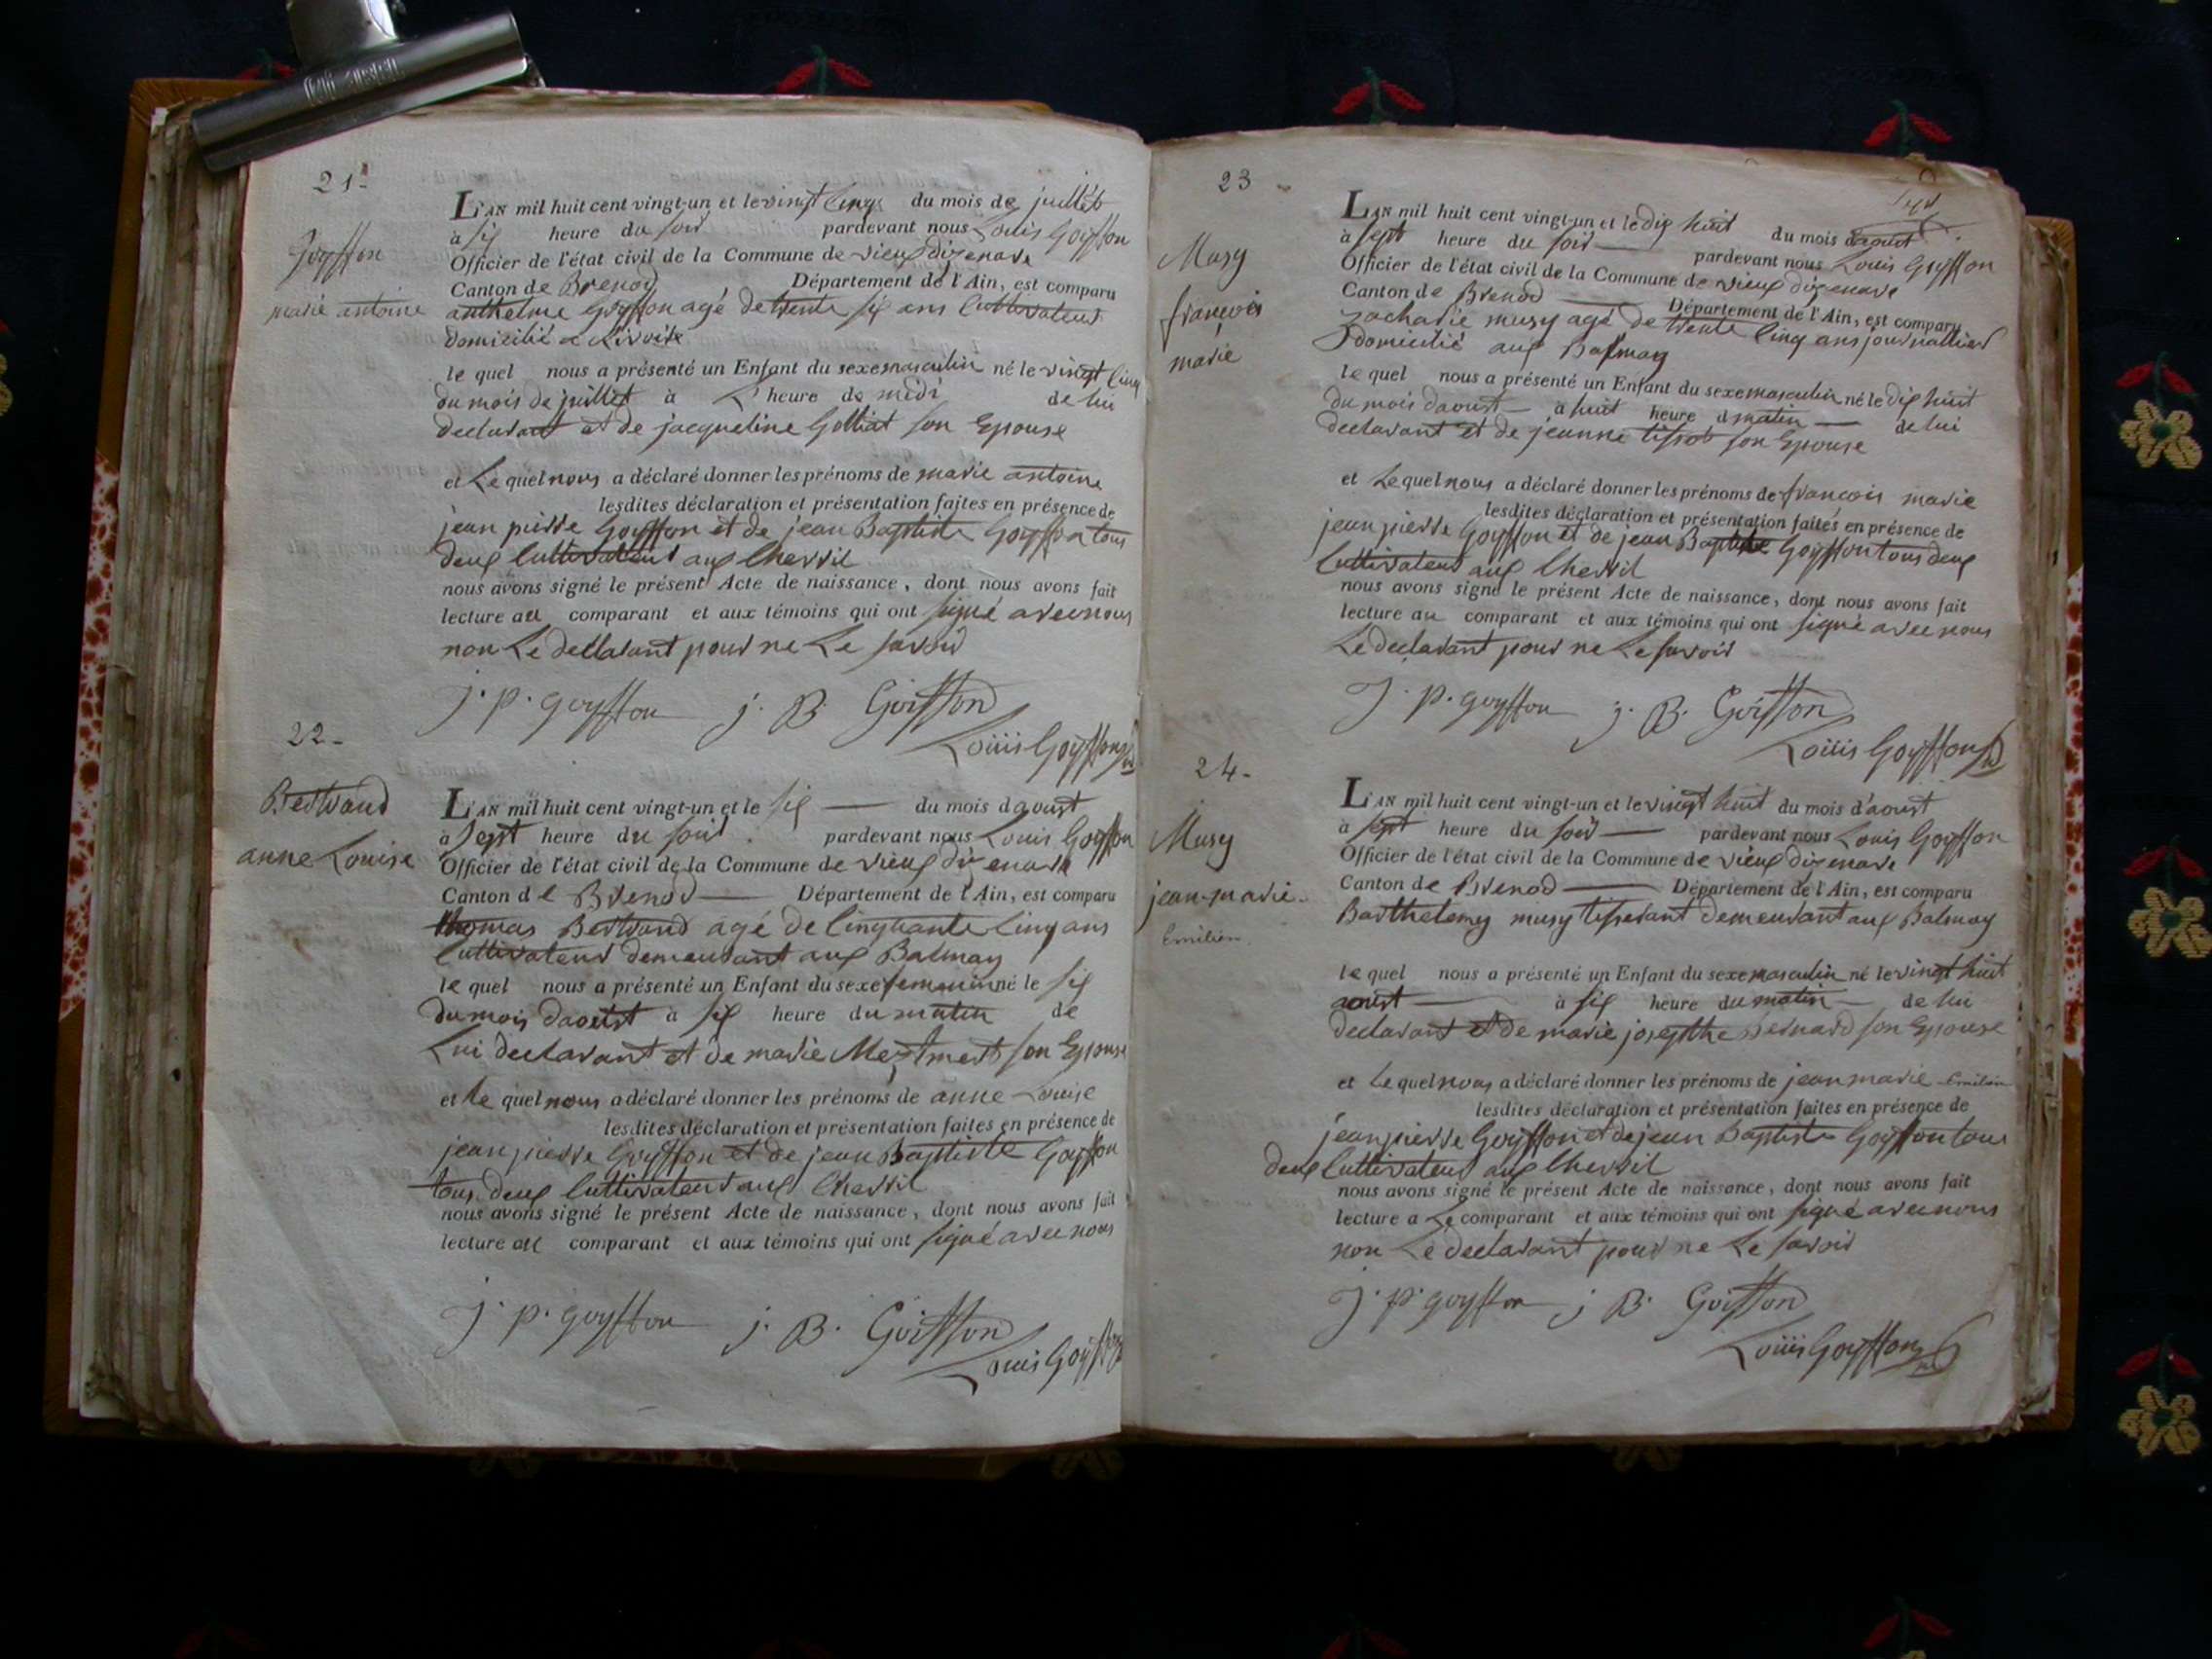 21-
Goyffon
marie antoine
L'AN mil huit cent vingt-un et le vingt cinq du mois de juillet
à six heure du soir pardevant nous Louis Goyffon
Officier de l'état civil de la Commune de vieux dizenave
Canton de Brenod Département de l'Ain, est comparu
anthelme Goyffon agé de trente six ans Cultivateur
domicilié a
le quel nous a présenté un Enfant du sexe masculin né le vingt cinq
du mois de juillet à L' heure de midi de lui
declarant et de jacqueline Golliat son Epouse
et Le quel nous a déclaré donner les prénoms de marie antoine
lesdites déclaration et présentation faites en présence de
jean pierre Goyffon et de jean Baptiste Goyffon tous
deux Cultivateur aux Chevril
nous avons signé le présent Acte de naissance, dont nous avons fait
lecture au comparant et aux témoins qui ont signé avec nous
non Le declarant pour ne Le savoir
j. p. goyffon j. B. Goiffon
Louis Goyffon
22-
Bertrand
anne Louise
L'AN mil huit cent vingt-un et le six du mois d aoust
à sept heure du soir pardevant nous Louis Goyffon
Officier de l'état civil de la Commune de vieux dizenave
Canton de Brenod Département de l'Ain, est comparu
thomas Bertrand agé de Cinquante Cinq ans
Cultivateur demeurant aux Balmay
le quel nous a présenté un Enfant du sexe femminin né le six
du mois d'aoust à six heure du matin de
Lui declarant et de marie Mermet son Epouse
et le quel nous a déclaré donner les prénoms de anne Louise
lesdites déclaration et présentation faites en présence de
jean pierre Goyffon et de jean Baptiste Goyffon
tous deux Cultivateur aux Chevril
nous avons signé le présent Acte de naissance, dont nous avons fait
lecture au comparant et aux témoins qui ont signé avec nous
j. p. goyffon j. B. Goiffon
Louis Goyffon
23
Musy
françois
marie
L'AN mil huit cent vingt-un et le dix huit du mois d'aoust
à sept heure du soir pardevant nous Louis Goyffon
Officier de l'état civil de la Commune de vieux dizenave
Canton de Brenod Département de l'Ain, est comparu
zacharie musy agé de trente Cinq ans journallier
domicilié aux Balmay
le quel nous a présenté un Enfant du sexe masculin né le dix huit
du mois d'aoust à huit heure d matin de lui
declarant et de jeanne tissot son Epouse
et Le quel nous a déclaré donner les prénoms de françois marie
lesdites déclaration et présentation faites en présence de
jean pierre Goyffon et de jean Baptiste Goyffon tous deux
Cultivateur aux Chevril
nous avons signé le présent Acte de naissance, dont nous avons fait
lecture au comparant et aux témoins qui ont signé avec nous
Le declarant pour ne Le savoir
J. p. goyffon j. B. Goiffon
Louis Goyffon
24-
Musy
jean-marie-
Emilien
L'AN mil huit cent vingt-un et le vingt huit du mois d'aoust
à sept heure du soir pardevant nous Louis Goyffon
Officier de l'état civil de la Commune de vieux dizenave
Canton de Brenod Département de l'Ain, est comparu
Barthelemy musy tisserant demeurant aux Balmay
le quel nous a présenté un Enfant du sexe masculin né le vingt huit
aoust à six heure du matin de lui
declarant et de marie josephte Bernard son Epouse
et Le quel nous a déclaré donner les prénoms de jean marie Emilien
lesdites déclaration et présentation faites en présence de
jean pierre Goyffon et de jean Baptiste Goyffon tous
deux Cultivateur aux Chevril
nous avons signé le présent Acte de naissance, dont nous avons fait
lecture a Le comparant et aux témoins qui ont signé avec nous
non Le declarant pour ne Le savoir
J. p. goyffon j B. Goiffon
Louis Goyffon